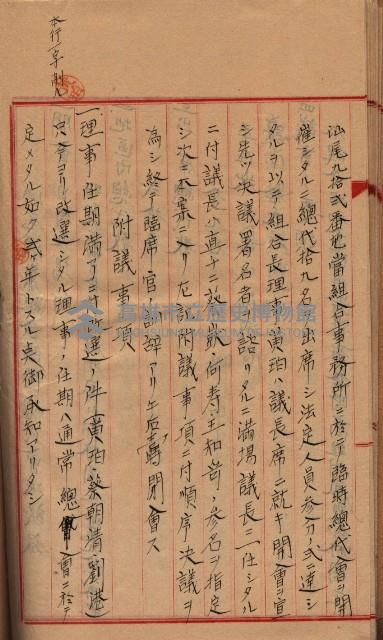 本行一字削ル
汕尾九拾貳番地當組合事務所ニ於テ臨時總代會ヲ開
催シタルニ總代拾九名ノ出席ニシ法定人員參分ノ貳ニ達シ
タルヲ以テ組合長理事黃珀ハ議長席ニ就キ開會ヲ宣
シ先ヅ決議署名者ヲ諮リタルニ滿場議長ニ一任シタル
ニ付議長ハ直チニ
何壽、王知
參名ヲ指定
シ次ニ本案ニ入リ左記附議事項ニ付順序決議ヲ
為シ終テ臨席官
アリ午后
閉會ス
附議事項
一理事任期滿了ニ付改選ノ件黃珀、蔡朝清、劉港
今ヨリ改選シタル理事ノ任期ハ通常總會ニ於テ
定メタル如ク貳ヶ年トスル
御承知アリタシ
高雄市立歷史博物館